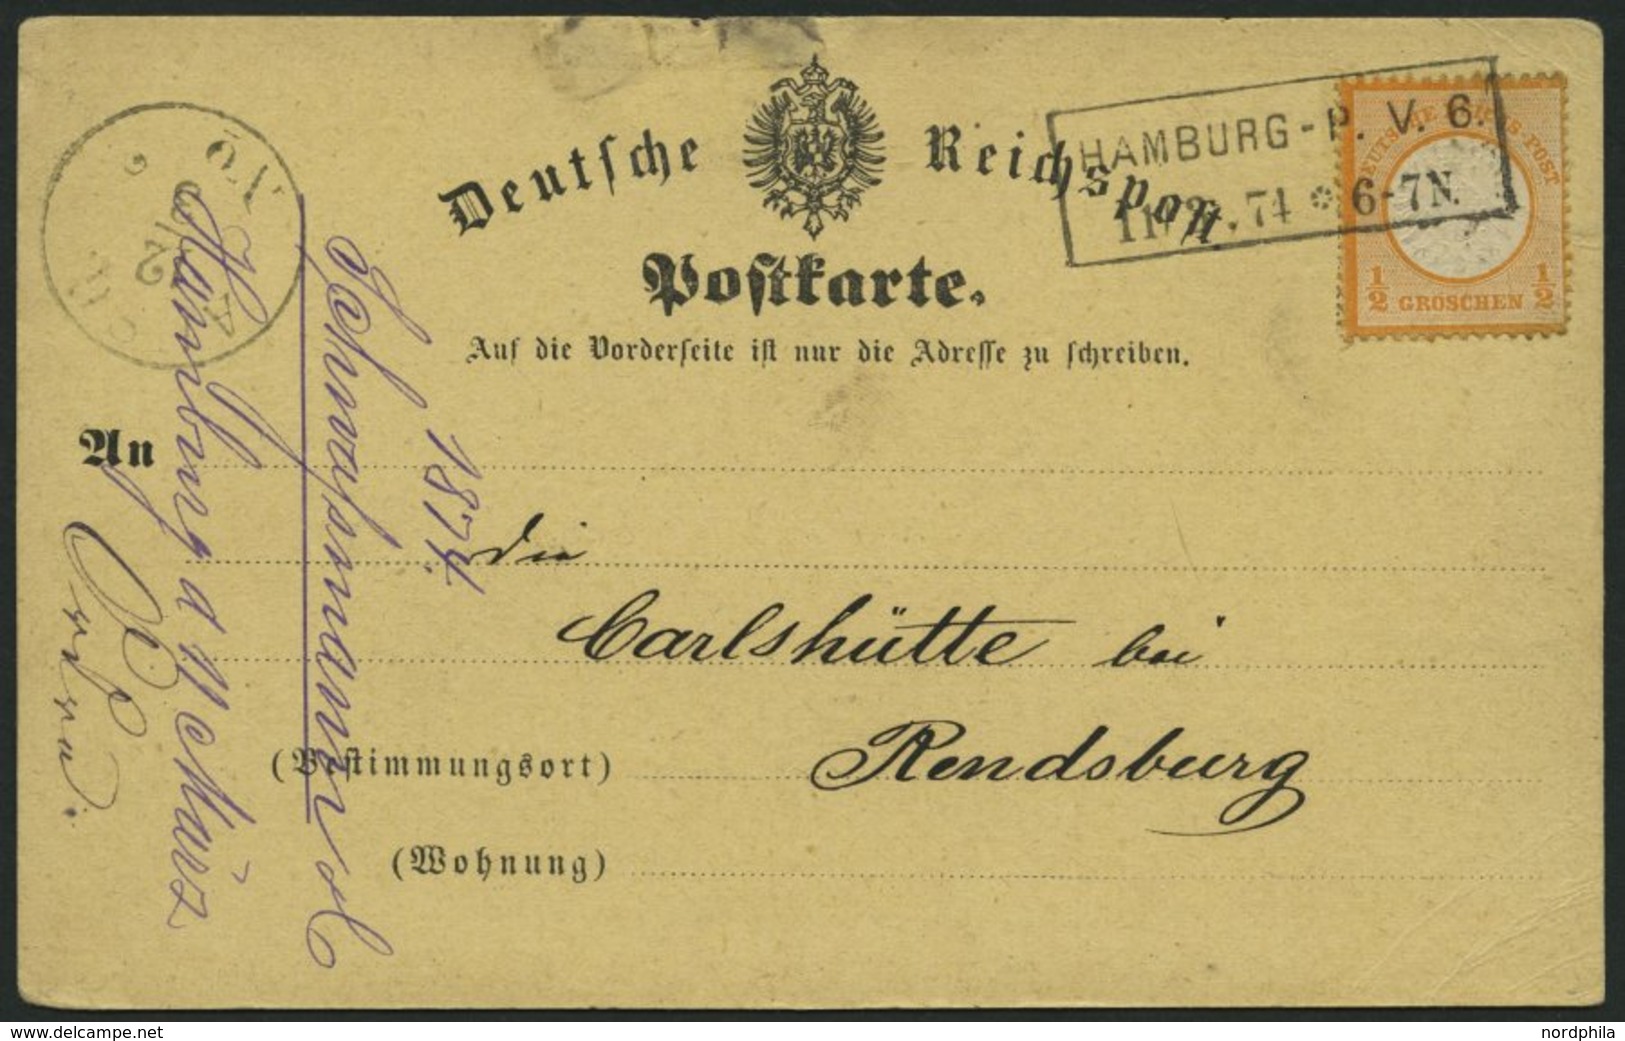 Deutsche Reichspost
Postkarte.
Auf die Vorderseite ist nur die Adresse zu schreiben.
HAMBURG - P. V. 6.
.74 * 6-7N.
DEUTSCHE REICHS-POST
1/2 GROSCHEN 1/2
12/2
An
die
Carlshütte bei
(Bestimmungsort) Rendsburg
(Wohnung)
1874
Hamburg
März
delcampe.net
nordphila